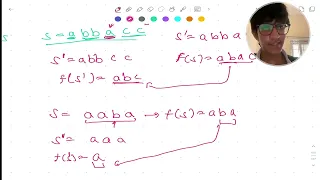 s = abbacc s' = abba
s' = abb cc f(s) = abac
f(s') = abc
s = aaba → f(s) = aba
s' = aaa
f(s) = a